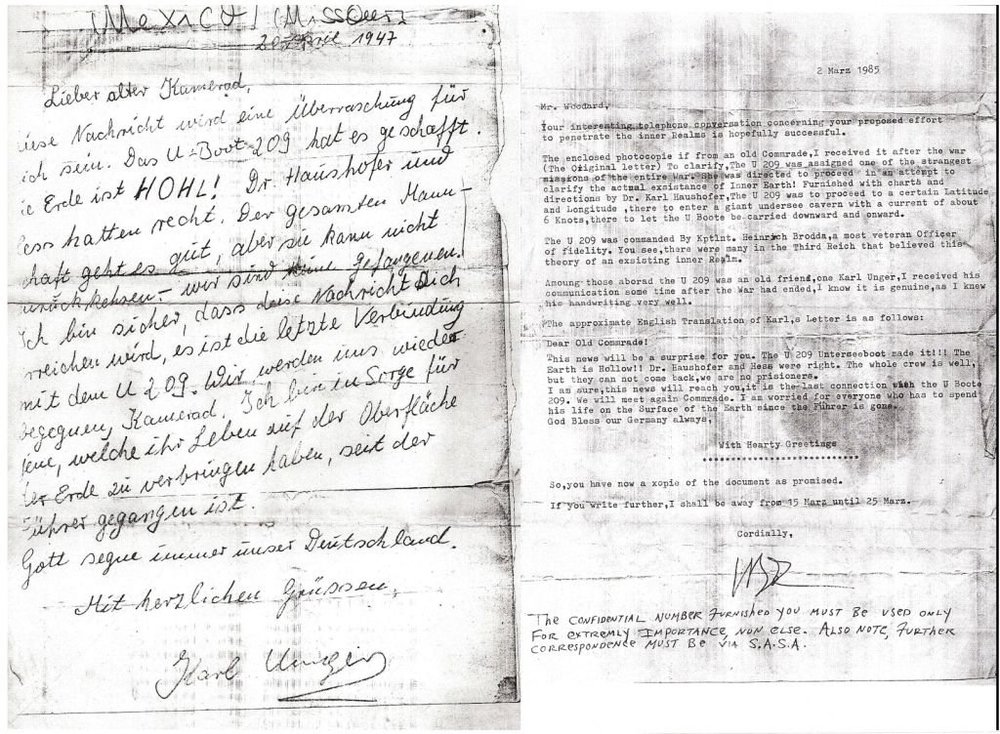 (Mexico/Missouri
20 April 1947
Lieber alter Kamerad,
iese Nachricht wird eine Überraschung für
ich sein. Das U-Boot-209 hat es geschafft.
ie Erde ist HOHL! Dr. Haushofer und
ess hatten recht. Der gesamten Mann-
haft geht es gut, aber sie kann nicht
urückkehsen - wir sind keine Gefangenen.
Ich bin sicher, dass deise Nachricht Dich
rreichen wird, es ist die letzte Verbindung
mit dem U 209. Wir werden uns wieder
begegnen, Kamerad. Ich bin in Sorge für
jene, welche ihr Leben auf der Oberfläche
der Erde zu verbringen haben, seit der
Führer gegangen ist.
Gott segne immer unser Deutschland.
Mit herzlichen Grüssen,
Karl Unger
2 Marz 1985
Mr. Woodard,
Your interesting telephone conversation concerning your proposed effort
to penetrate the inner Realms is hopefully successful.
The enclosed photocopie if from an old Commrade,I received it after the war
(The Original letter) To clarify,The U 209 was assigned one of the strangest
missions of the entire War. She was directed to proceed in an attempt to
clarify the actual exsistance of Inner Earth! Furnished with charts and
directions by Dr. Karl Haushofer,The U 209 was to proceed to a certain Latitude
and Longitude ,there to enter a giant undersee cavern with a current of about
6 Knots,there to let the U Boote be carried downward and onward.
The U 209 was commanded By Kptlnt. Heinrich Brodda,a most veteran Officer
of fidelity. You see,there were many in the Third Reich that believed this
theory of an exsisting inner Realm.
Amoung those aborad the U 209 was an old friend,one Karl Unger,I received his
communication some time after the War had ended,I know it is genuine,as I knew
his handwriting very well.
The approximate English Translation of Karl,s Letter is as follows:
Dear Old Commrade!
This news will be a surprise for you. The U 209 Unterseeboot made it!!! The
Earth is Hollow!! Dr. Haushofer and Hess were right. The whole crew is well,
but they can not come back,we are no prisioners.
I am sure,this news will reach you,it is the last connection with the U Boote
209. We will meet again Commrade. I am worried for everyone who has to spend
his life on the Surface of the Earth since the Führer is gone.
God Bless our Germany always,
With Hearty Greetings
So,you have now a xopie of the document as promised.
If you write further,I shall be away from 15 Marz until 25 Marz.
Cordially,
THE CONFIDENTIAL NUMBER FURNISHED YOU MUST BE USED ONLY
FOR EXTREMLY IMPORTANCE, NON ELSE. ALSO NOTE, FURTHER
CORRESPONDENCE MUST BE VIA S.A.S.A.